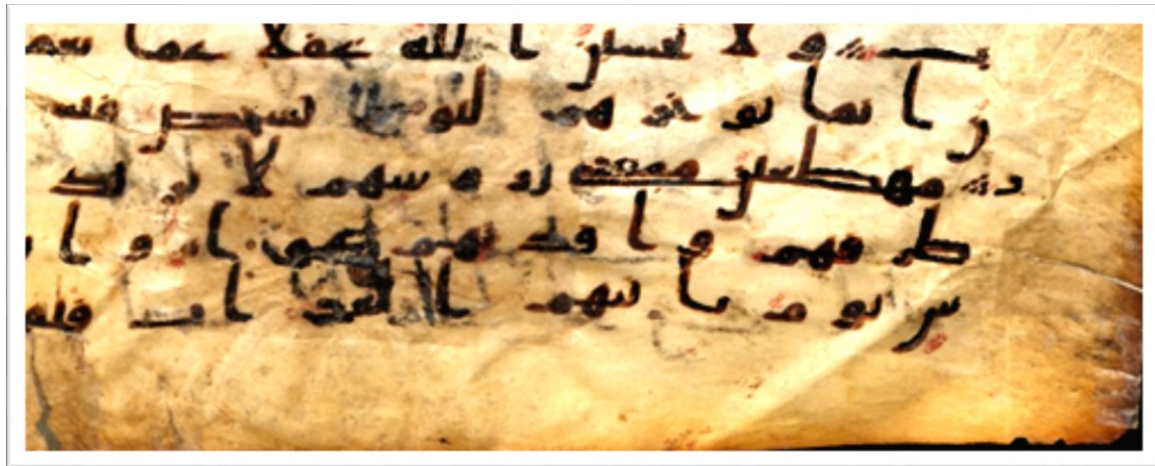 ولا تحسبن الله غفلا عما يعمـ
ن انما يوخرهم ليوم تشخص فيه
ر مهطعين مقنعي روسهم لا يرتد
طرفهم وافدتهم هوا وا
س يوم ياتيهم العذاب فيقو